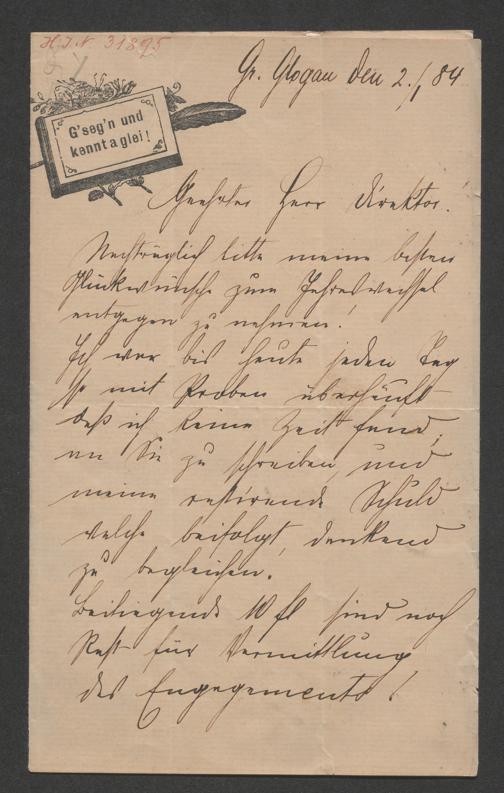 H.I.N. 31895
Gr. Glogau den 2./1 84
G'seg'n und
kennt a glei!
Geehrter Herr Direktor!
Nachträglich bitte meine besten
Glückwünsche zum Jahreswechsel
entgegen zu nehmen!
Ich war bis heute jeden Tag
so mit Proben überhäuft
daß ich keine Zeit fand,
an Sie zu schreiben, und
meine restirende Schuld
welche beifolgt, dankend
zu begleichen.
Beiliegende 10 fl sind noch
Rest für Vermittlung
des Engagements!